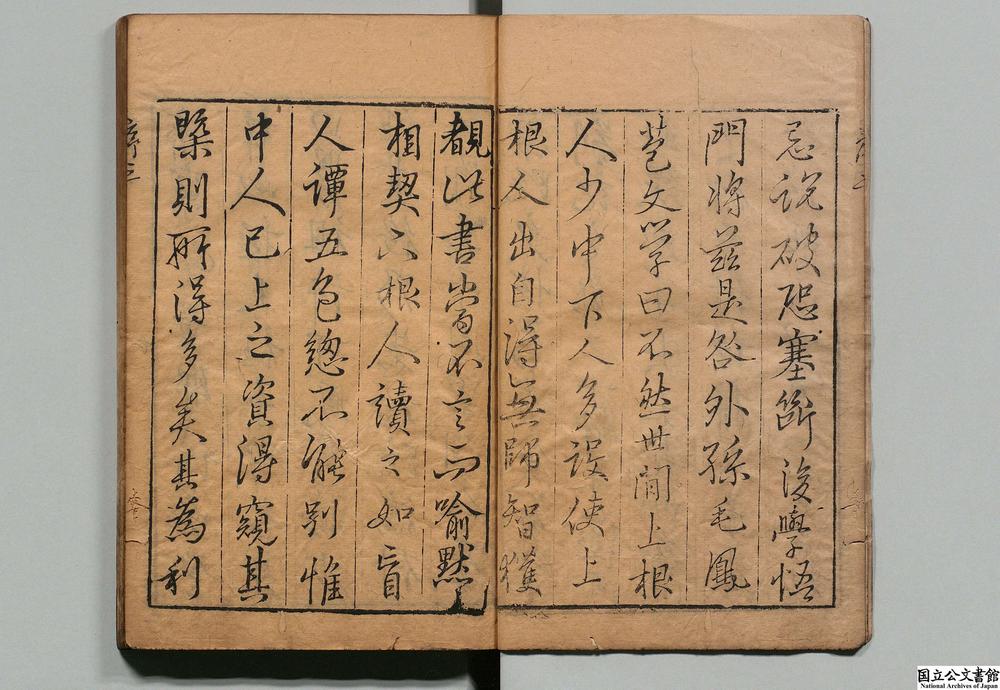 忌說破恐塞斷後學悟
門將茲是咎外孫毛鳳
苞文學曰不然世間上根
人少中下人多設使上
根人出自得無師智獲
覩此書當不言而喻默
相契下根人讀之如盲
人譚五色緫不能別惟
中人已上之資得窺其
槩則所得多矣其為利
序三
国立公文書館
National Archives of Japan